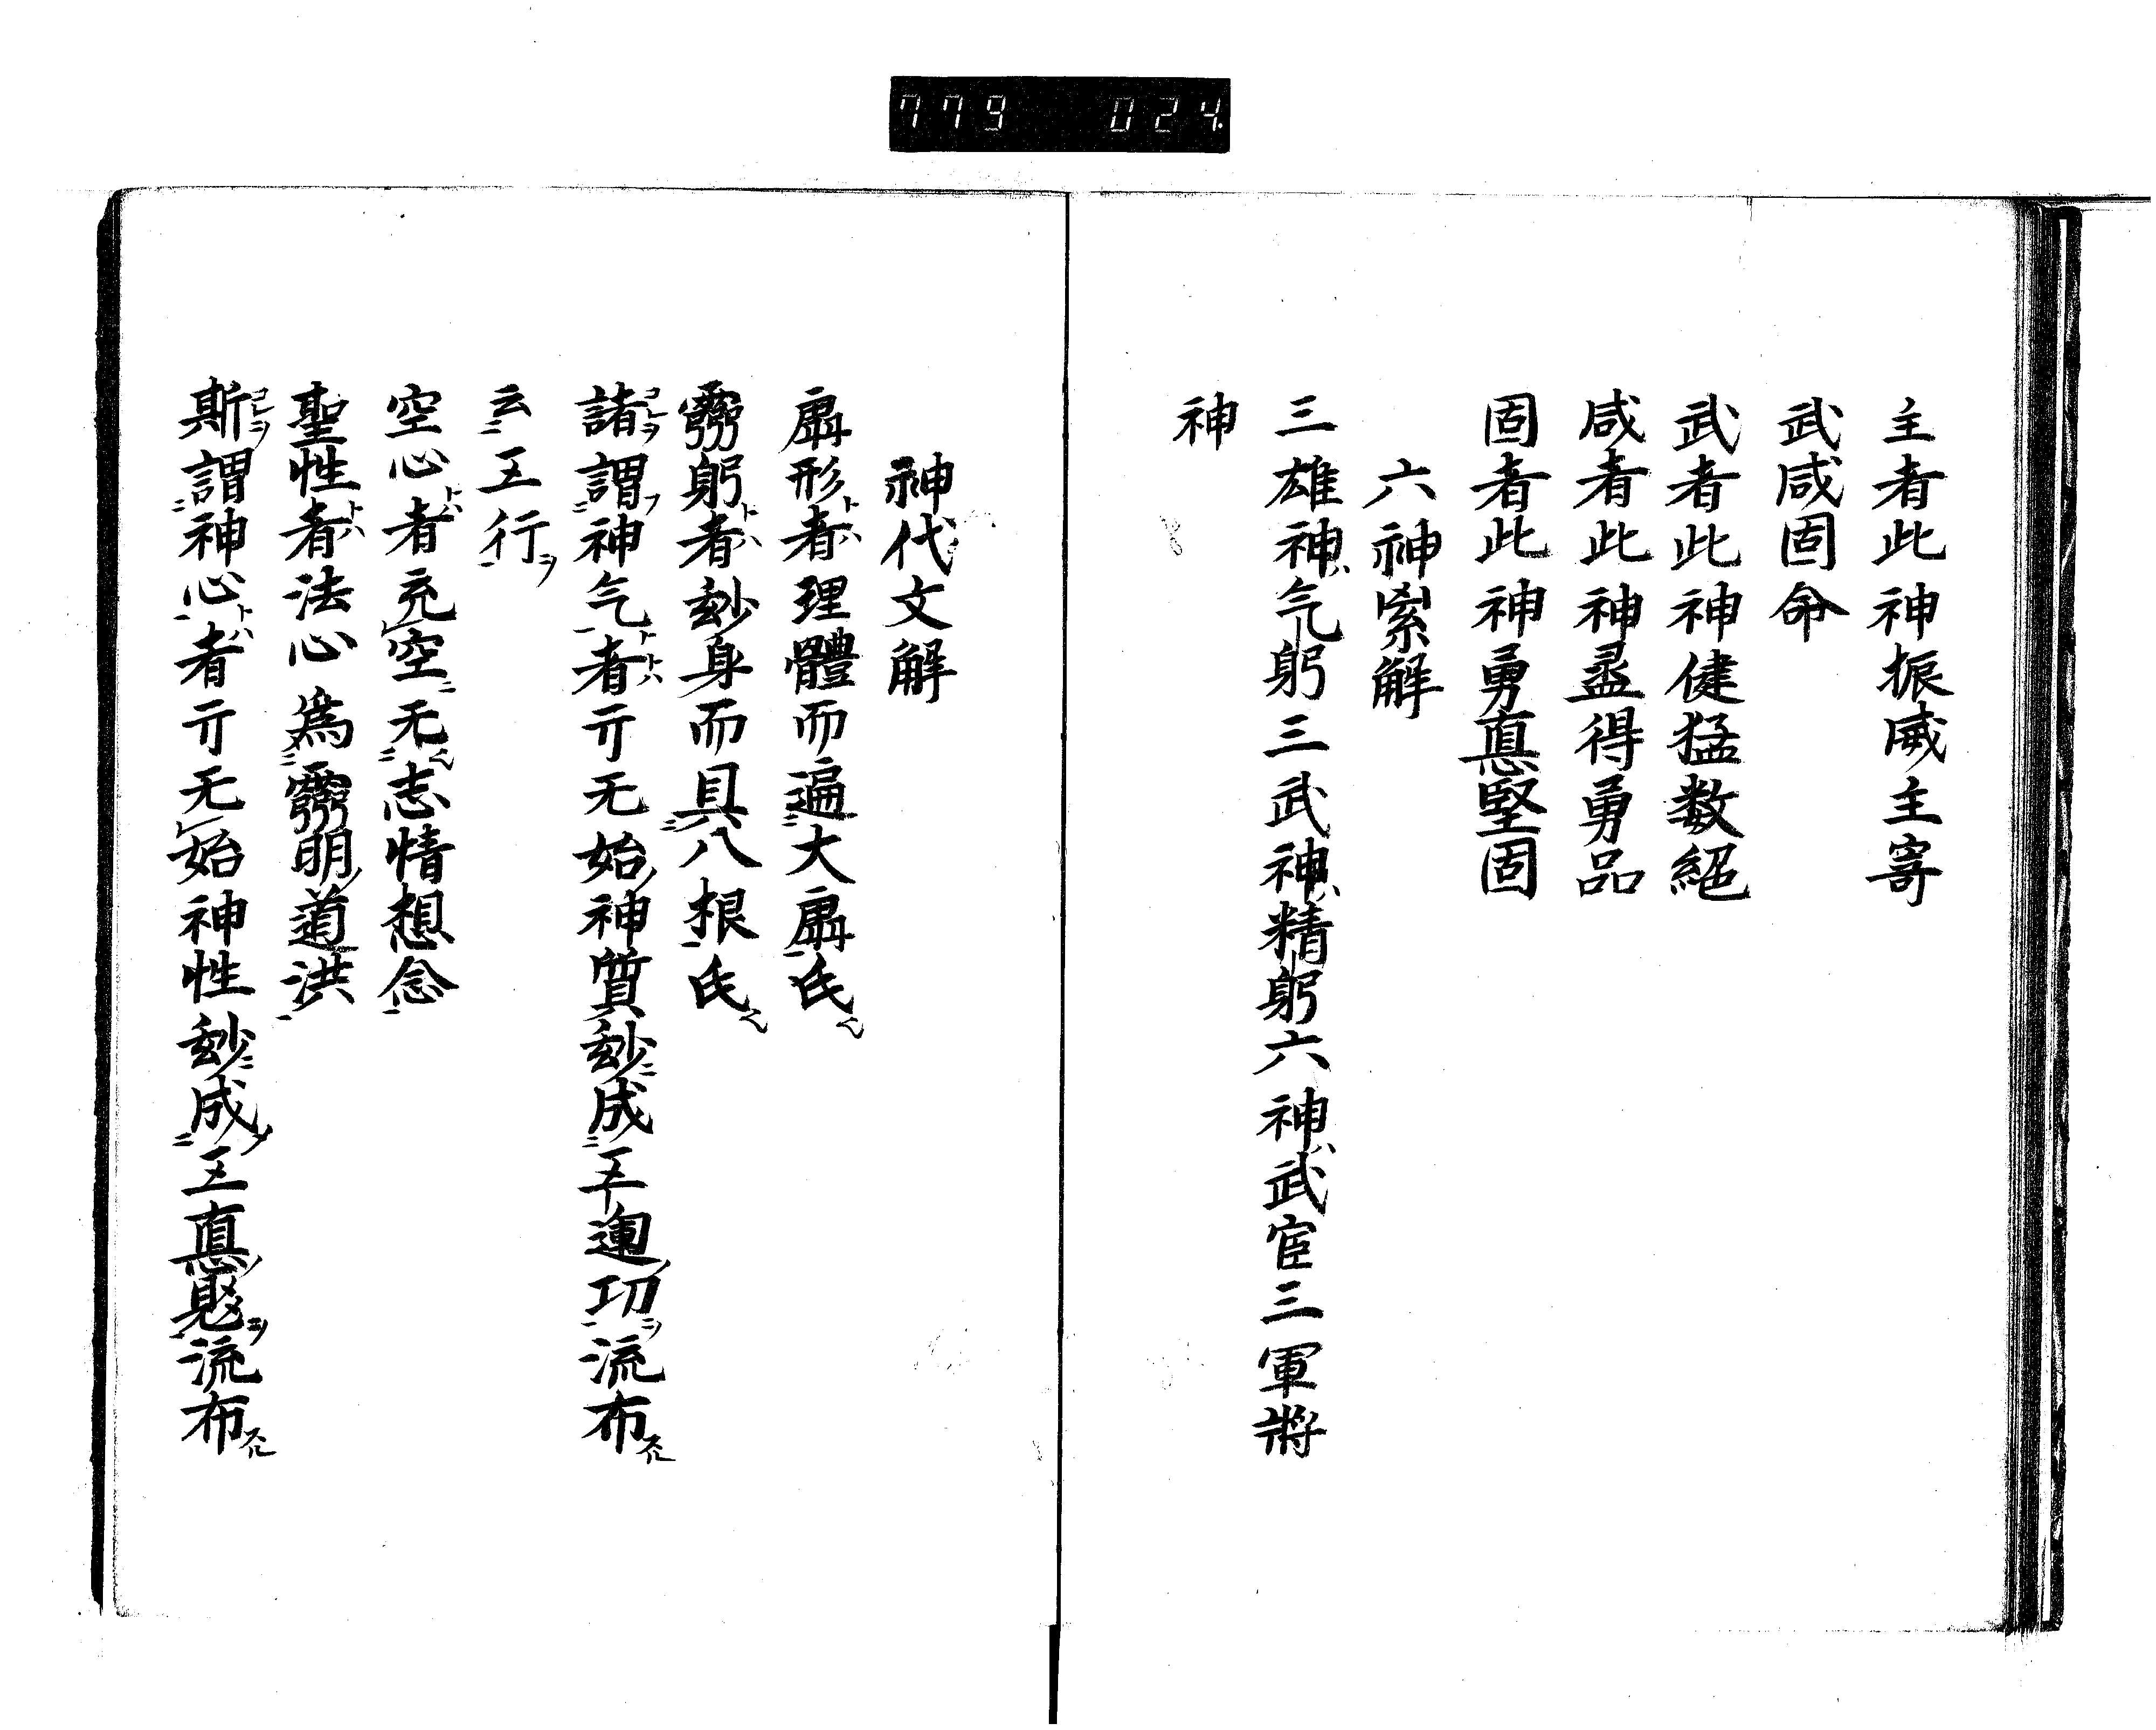 779 024.
主者此神振威主寄
武咸固命
武者此神健猛数絕
咸者此神盡得勇品
固者此神勇真堅固
六神索解
三雄神ハ气躬三武神ハ精躬六神ハ武官三軍將
神
神代文解
形者トハ理體而遍大氏
躬者トハ玅身而具八根氏
諸謂神气者トハ亓无始神質玅成五運功流布
云五行ヲ
空心者トハ充空无志情想念
聖性者トハ法心為明道洪
斯謂神心者トハ亓无始神性玅成五真流布